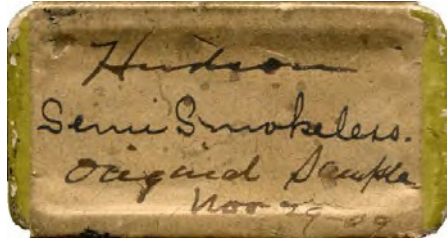 Hudson
Semi Smokeless.
Original Sample
Nov 29-09